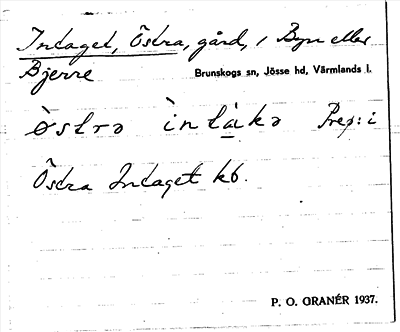 Intaget, Östra, gård, i Byn eller
Bjerre
Brunskogs sn, Jösse hd, Värmlands l.
östrə ìntàkə Prep: i
Östra Intaget kb.
P. O. GRANÉR 1937.